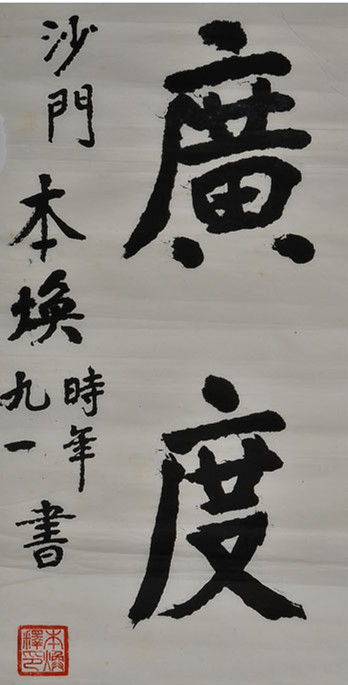 廣度
沙門本煥時年九一書
本煥釋印